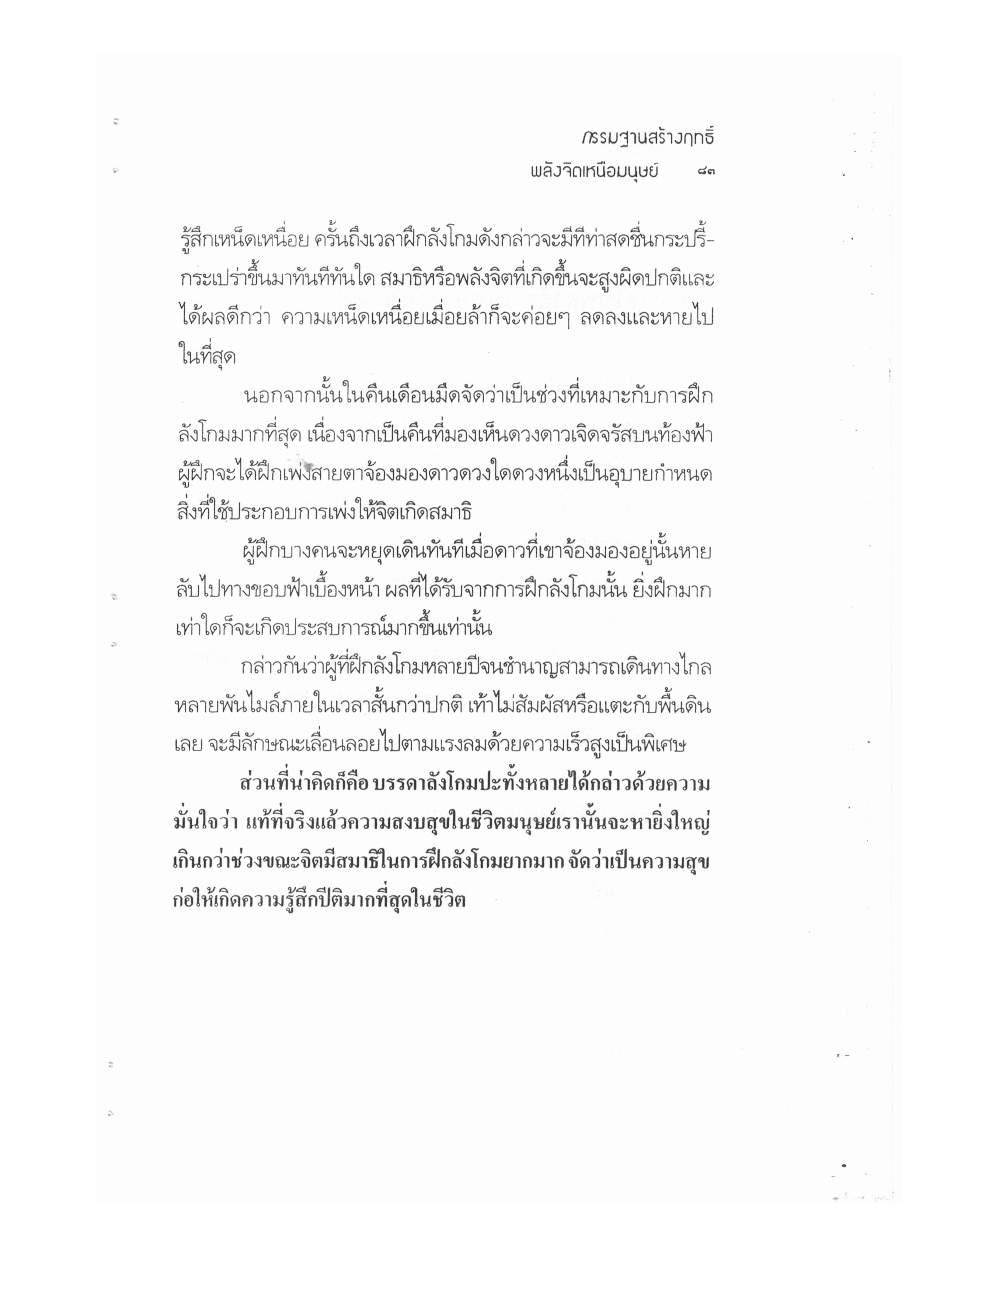 กรรมฐานสร้างฤทธิ์
พลังจิตเหนือมนุษย์ ๘๓
รู้สึกเหน็ดเหนื่อย ครั้นถึงเวลาฝึกลังโกมดังกล่าวจะมีทีท่าสดชื่นกระปรี้-
กระเปร่าขึ้นมาทันทีทันใด สมาธิหรือพลังจิตที่เกิดขึ้นจะสูงผิดปกติและ
ได้ผลดีกว่า ความเหน็ดเหนื่อยเมื่อยล้าก็จะค่อยๆ ลดลงและหายไป
ในที่สุด
นอกจากนั้นในคืนเดือนมืดจัดว่าเป็นช่วงที่เหมาะกับการฝึก
ลังโกมมากที่สุด เนื่องจากเป็นคืนที่มองเห็นดวงดาวเจิดจรัสบนท้องฟ้า
ผู้ฝึกจะได้ฝึกเพ่งสายตาจ้องมองดาวดวงใดดวงหนึ่งเป็นอุบายกำหนด
สิ่งที่ใช้ประกอบการเพ่งให้จิตเกิดสมาธิ
ผู้ฝึกบางคนจะหยุดเดินทันทีเมื่อดาวที่เขาจ้องมองอยู่นั้นหาย
ลับไปทางขอบฟ้าเบื้องหน้า ผลที่ได้รับจากการฝึกลังโกมนั้น ยิ่งฝึกมาก
เท่าใดก็จะเกิดประสบการณ์มากขึ้นเท่านั้น
กล่าวกันว่าผู้ที่ฝึกลังโกมหลายปีจนชำนาญสามารถเดินทางไกล
หลายพันไมล์ภายในเวลาสั้นกว่าปกติ เท้าไม่สัมผัสหรือแตะกับพื้นดิน
เลย จะมีลักษณะเลื่อนลอยไปตามแรงลมด้วยความเร็วสูงเป็นพิเศษ
ส่วนที่น่าคิดก็คือ บรรดาลังโกมปะทั้งหลายได้กล่าวด้วยความ
มั่นใจว่า แท้ที่จริงแล้วความสงบสุขในชีวิตมนุษย์เรานั้นจะหายิ่งใหญ่
เกินกว่าช่วงขณะจิตมีสมาธิในการฝึกลังโกมยากมาก จัดว่าเป็นความสุข
ก่อให้เกิดความรู้สึกปีติมากที่สุดในชีวิต